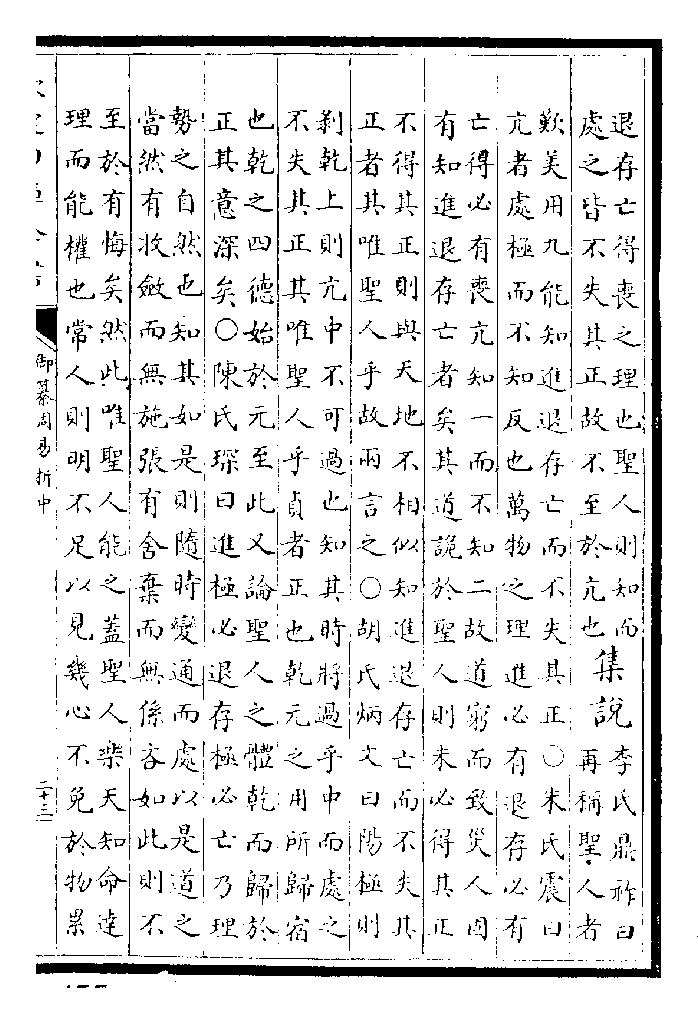 退存亡得喪之理也聖人則知而
處之皆不失其正故不至於亢也
集說
李氏鼎祚曰
再稱聖人者
歎美用九能知進退存亡而不失其正○朱氏震曰
亢者處極而不知反也萬物之理進必有退存必有
亡得必有喪亢知一而不知二故道窮而致災人固
有知進退存亡者矣其道詭於聖人則未必得其正
不得其正則與天地不相似知進退存亡而不失其
正者其唯聖人乎故兩言之○胡氏炳文曰陽極則
剥乾上則亢中不可過也知其時將過乎中而處之
不失其正其唯聖人乎貞者正也乾元之用所歸宿
也乾之四德始於元至此又論聖人之體乾而歸於
正其意深矣○陳氏琛曰進極必退存極必亡乃理
勢之自然也知其如是則隨時變通而處以是道之
當然有收斂而無施張有舍棄而無係吝如此則不
至於有悔矣然此唯聖人能之蓋聖人樂天知命達
理而能權也常人則明不足以見幾心不免於物累
御纂周易折中
二十三